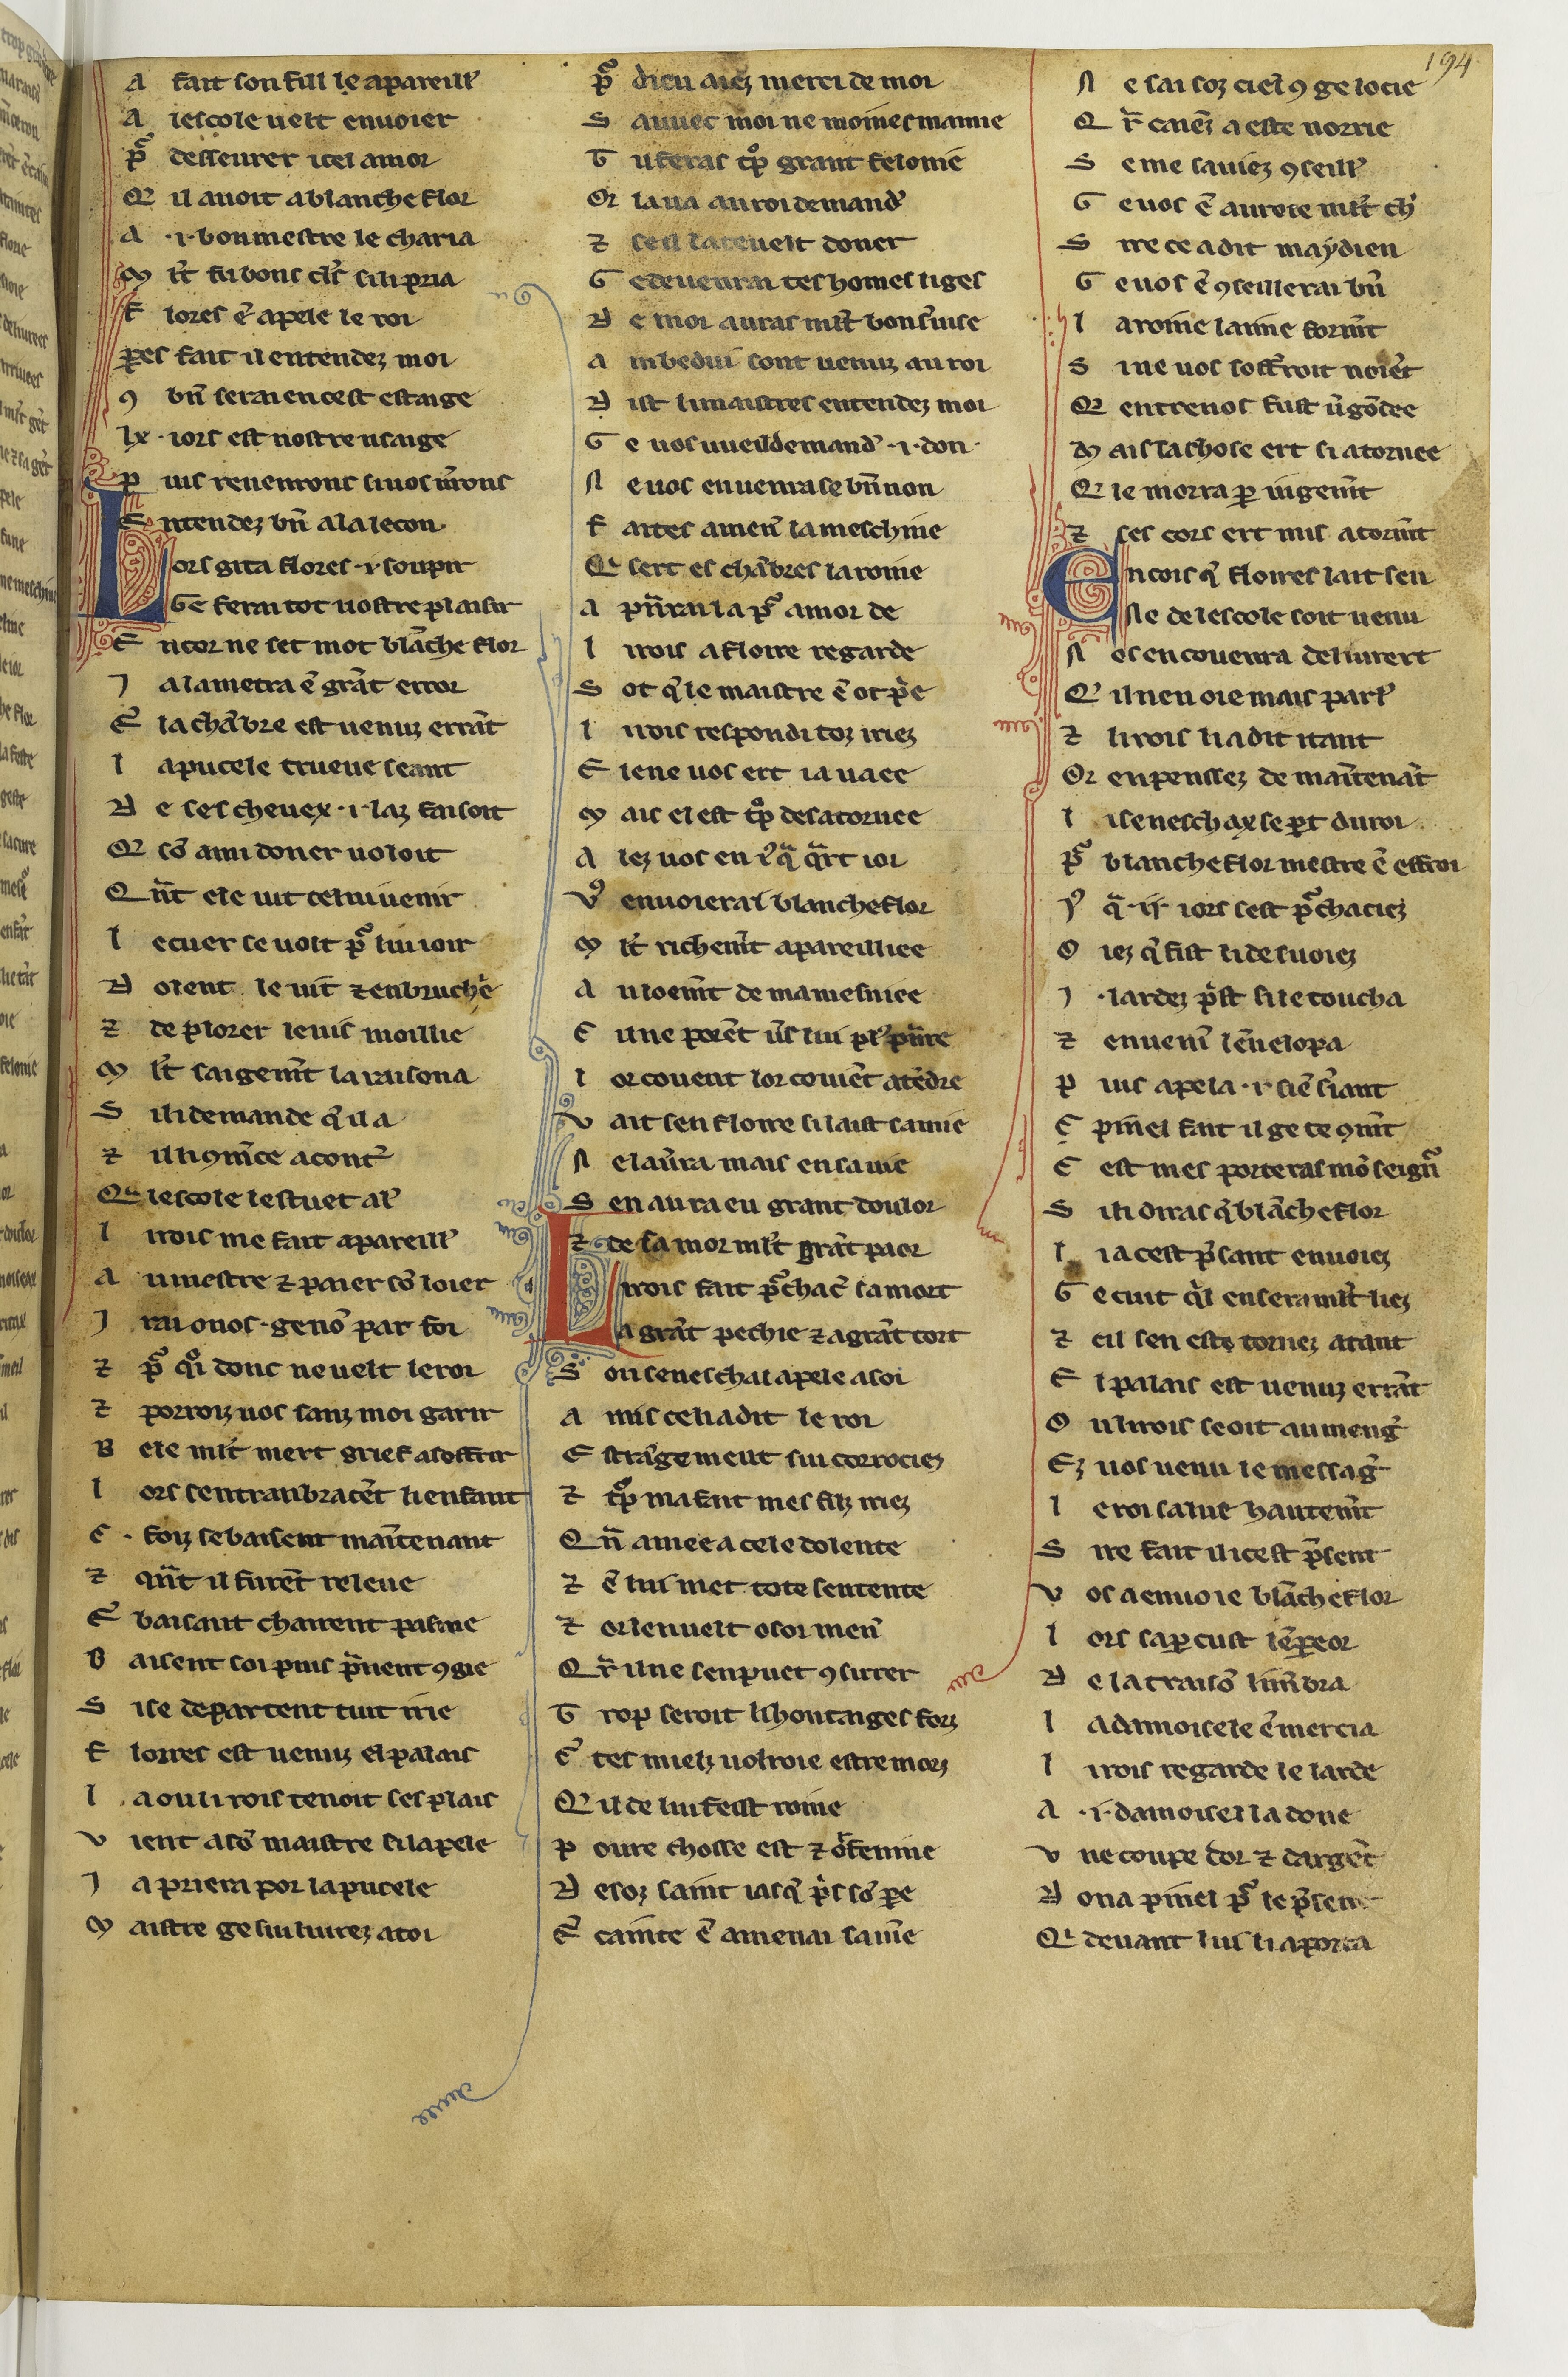 194
A fait son fill le apareillr̄
A lescole uelt enuoier
P̄ desseurer icel amor
Q̄ il auoit a blancheflor
A .i. bon mestre le charia
M lt̄ fu bons clr̄s si li pria
F lores ē apele le roi
P̲es fait il entendez moi
9 bn̄ serai en cest estaige
lx. iors est nostre usaige
P uis reuenrons si uos uerrons
E ntendez bn̄ a la lecon
L ors gita flores .i. soupir
Ge ferai tot uostre plaisir
E ncor ne set mot blāche flor
J a la metra ē grāt error
Ē la chābre est uenuz errāt
L a pucele trueue seant
D e ses cheuex .i. laz faisoit
Q̄ sō ami doner uoloit
Q n̄t ele uit celui uenir
L e cuer se uolt p̄ lui ioir
D olent le uit ⁊ enbruchē
⁊ de plorer le uis moillie
M lt̄ saigemt̄ laraisona
S i li demande q̄ il a
⁊ il li 9mēce a contr̄
Q̄ lescole lestuet alr̄
L i rois me fait apareillr̄
A u mestre ⁊ paier sō loier
J rai o uos. ge nō par foi
⁊ p̄ qoi donc ne uelt le roi
⁊ porroiz uos sanz moi garir
B ele mlt̄ mert grief a soffrir
L ors sentranbracēt li enfant
C . foiz se baisent maītenant
⁊ qn̄t il furēt releue
Ē baisant chairent pasme
B aisent soi puis p̄nent 9gie
S i se departent tuit irie
F loires est uenuz el palais
L a ou li rois tenoit ses plais
V ient a sō maistre si lapele
J a priera por la pucele
M aistre ge sui liurez a toi
P̄ dieu aiez merci de moi
S auuec moi ne moines mamie
T u feras tp̄ grant felonie
Or la ua au roi demandr̄
⁊ se il la te uelt doner
G e deuenrai tes homes liges
D e moi auras mlt̄ bon s̄uise
A mbedui sont uenuz au roi
D ist li maistres entendez moi
G e uos uueil demandr̄ .i. don
N e uos en uenra se bn̄ non
F aites amenr̄ la meschine
Q̄ sert es chābres la roine
A pn̄rai la p̄ amor de
L i rois a floire regarde
S ot q̄ le maistre ē ot p̄e
L i rois respondi toz iriez
E le ne uos ert ia uaee
M ais el est tp̄ desatornee
A lez uos en iusq̄ qart ior
V̄ enuoierai blancheflor
M lt̄ richemt̄ apareilliee
A u loemt̄ de ma mesniee
C il ne poēt ūs lui pl̄ pn̄re
L or couent lor couiēt atēdre
V ait sen floire si laist samie
N e la ūra mais en sa uie
S en aura eu grant doulor
⁊ de sa mor mlt̄ grāt paor
L i rois fait p̄chac̄ sa mort
A grāt pechie ⁊ a grāt tort
S on seneschal apele a soi
A mis ce li a dit le roi
E strāgement sui corrociez
⁊ tp̄ ma fait mes filz iriez
Q n̄ amee a cele dolente
⁊ ē lui met tote sentente
⁊ or len uelt o soi menr̄
Q̄r il ne sen puet 9sirrer
T rop seroit li hontaiges forz
Ē tes mielz uolroie estre morz
Q̄ il de lui feist roine
P oure chosse est ⁊ orfenine
D esoz saint iaq̄ p̄s sō pe
Ē cainte ē amenai sa m̄e
N e sai soz ciel 9 ge locie
Q̄r caiēs a este norrie
S e me sauiez 9seillr̄
G e uos ē auroie mlt̄ chr̄
S ire ce a dit maydien
G e uos ē 9seillerai bn̄
L a roine laime formt̄
S i ne uos soffroit noiēt
Q̄ entre nos fust ūgōdee
M ais la chose ert si atornee
Q̄ le morra p̲ iugemt̄
⁊ ses cors ert mis a tormt̄
E ncois q̄ floires lait seu
Ne de lescole soit uenu
N os en couenra deliurert
Q̄ il nen oie mais parlr̄
⁊ li rois li a dit itant
Or en penssez de maītenāt
L i seneschax se p̲t du roi
P̄ blancheflor mestre ē effroi
J̄ q̄ .ii. iors sest p̄chaciez
O iez q̄ fist li desuoiez
J .lardez p̄st si le toucha
⁊ en uenī lēuelopa
P uis apela .i. siē s̄iant
E pinel fait il ge te 9mt̄
C est mes porteras mō seignr̄
S i li diras q̄ blācheflor
L i a cest p̄sant enuoiez
G e cuit qīl en sera mlt̄ liez
⁊ cil sen este tornez atant
E l palais est uenuz errāt
O u li rois seoit au mengr̄
Ez uos uenu le messagr̄
L e roi salue hautemt̄
S ire fait il icest p̄sent
V os a enuoie blācheflor
L ors sap̲cust lēp̲eor
D e la traisō li mēbra
L a damoisele ē mercia
L i rois regarde le larde
A .i. damoisel la done
V ne coupe dor ⁊ dargēt
D ona pinel p̄ le p̄sent
Q̄ deuant lui li aporta